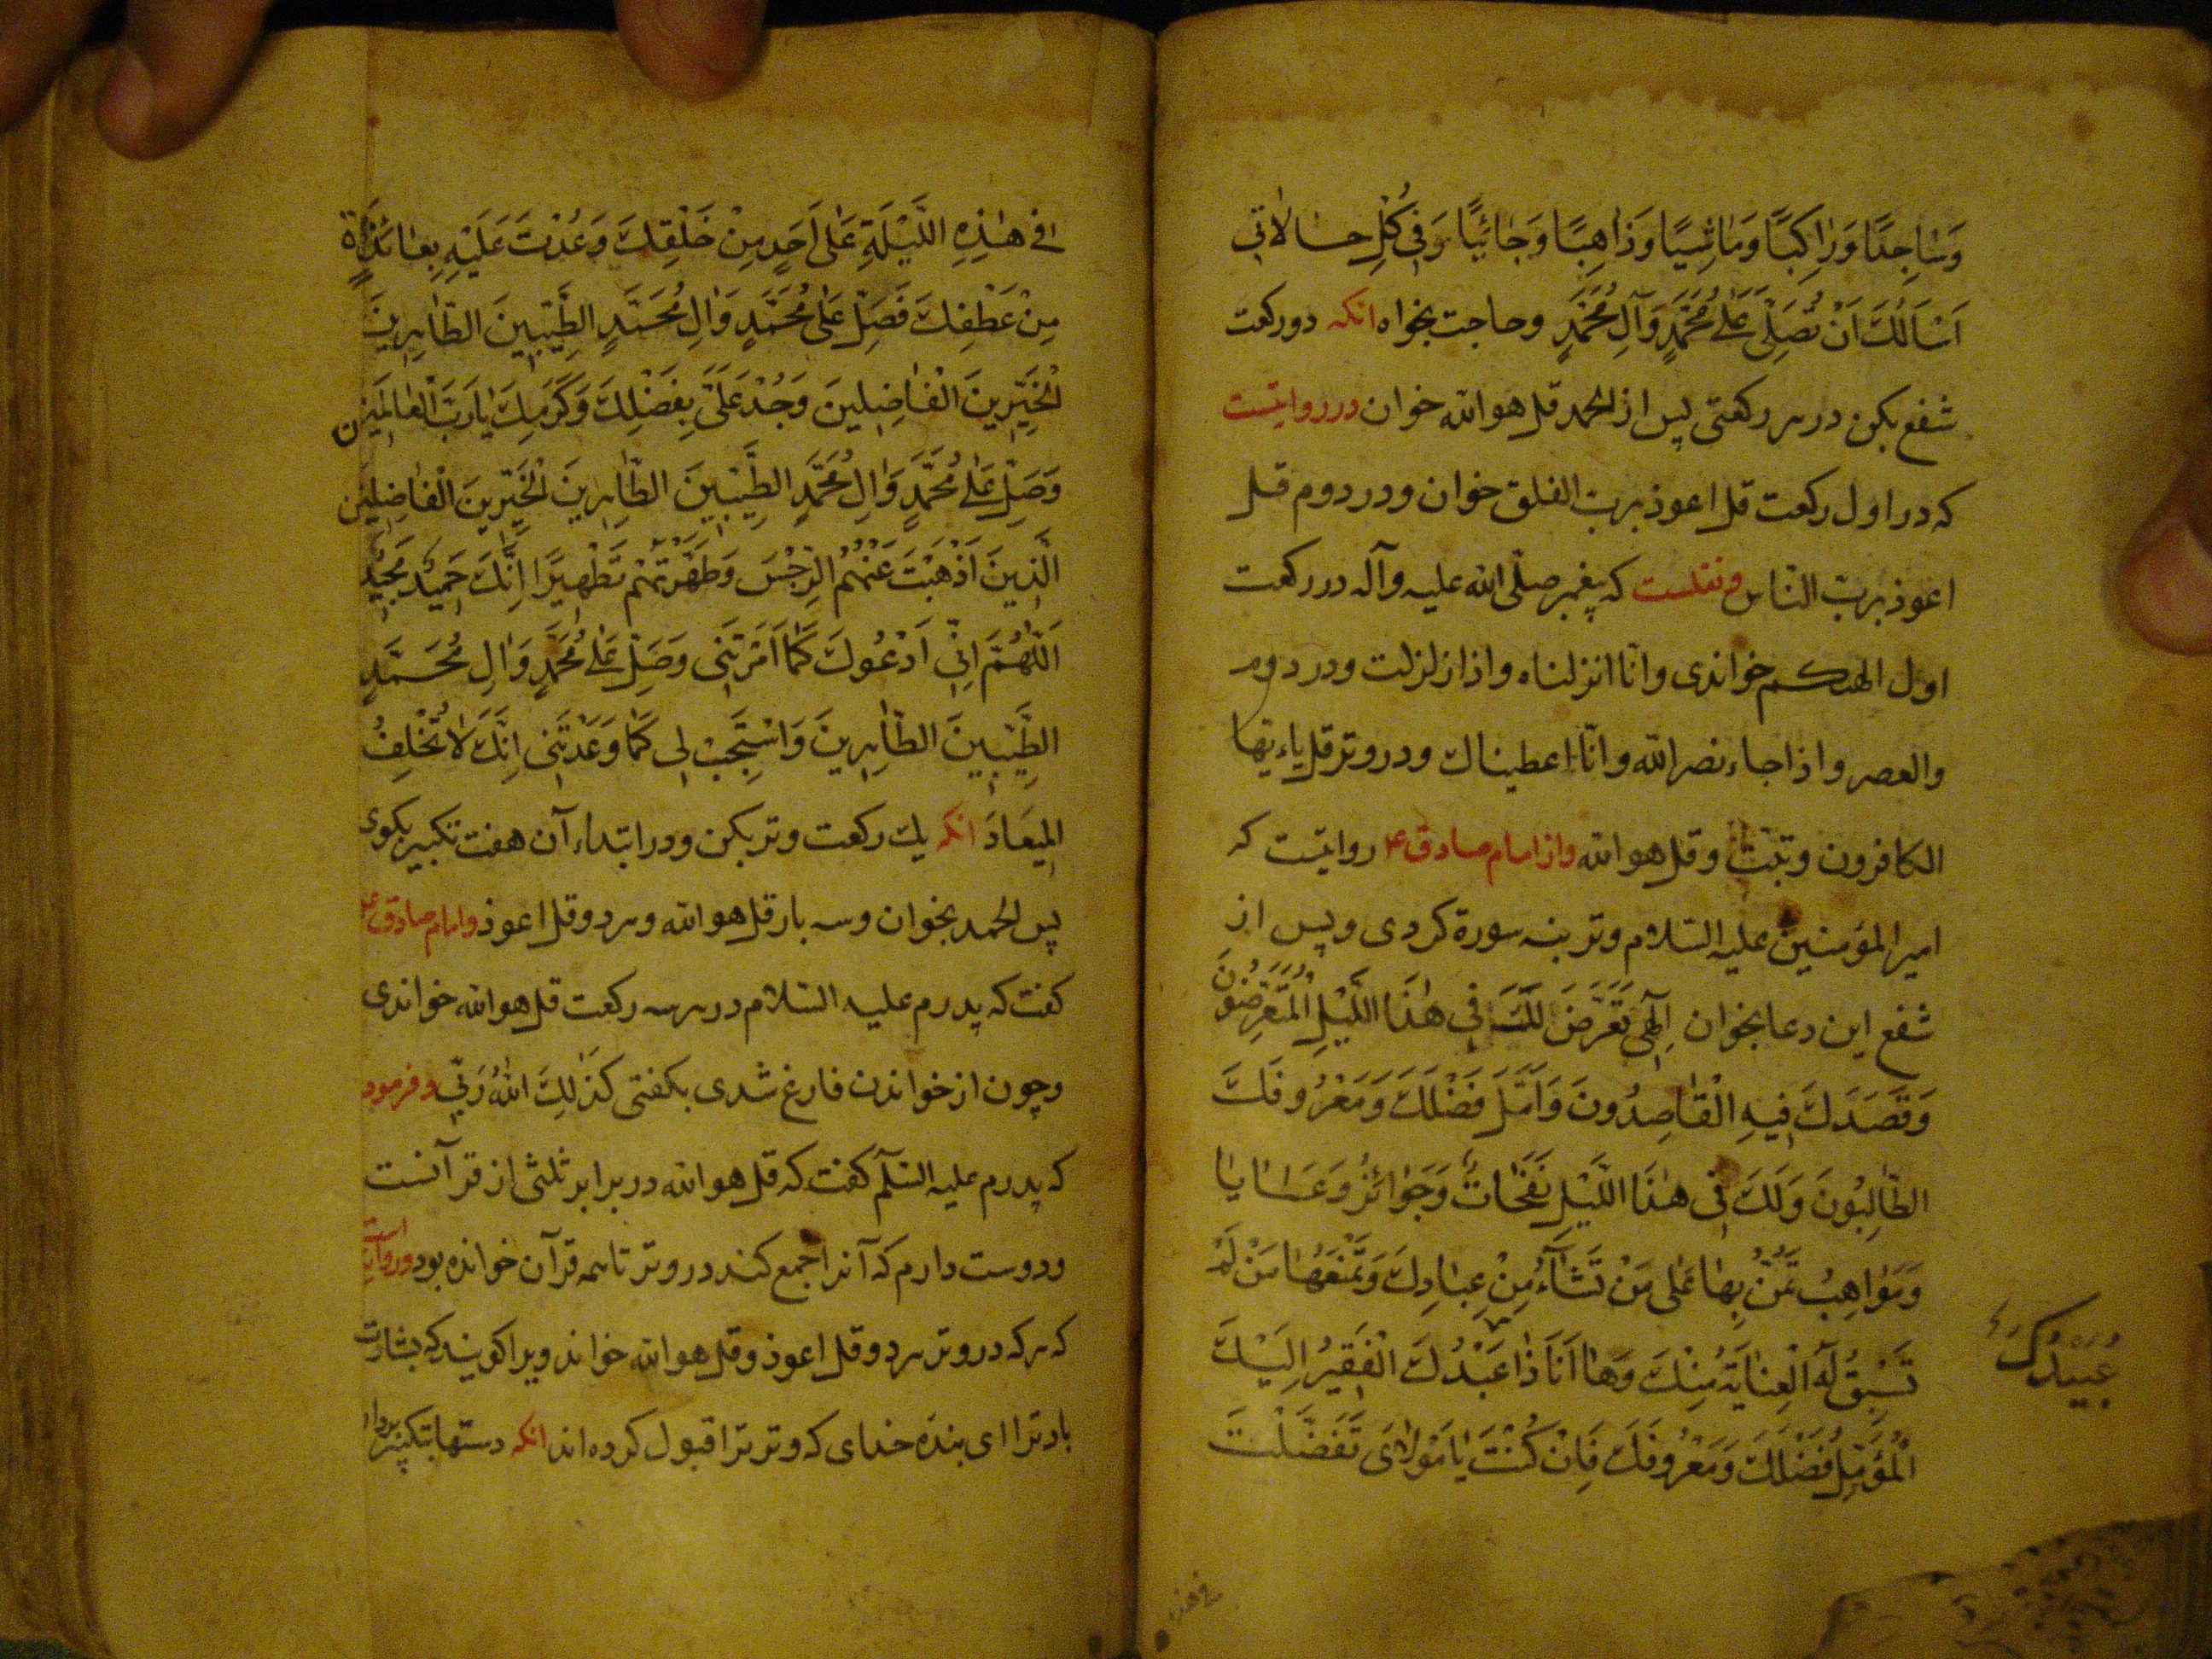 وَسٰاجِدًا وَرٰاكِبًا وَمٰاشِيًا وَذٰاهِبًا وَجٰائِيًا وَفِي كُلِّ حٰالاٰتِي
اَسْاَلُكَ اَنْ تُصَلِّيَ عَلٰى مُحَمَّدٍ وَآلِ مُحَمَّدٍ وحاجت بخواه انكه دو ركعت
شفع بكن در هر ركعتى پس از الحمد قل هو الله خوان در روايتست
كه در اول ركعت قل اعوذ برب الفلق خوان ودر دوم قل
اعوذ برب النّاس ونقلست كه پيغمبر صلّى الله عليه وآله در ركعت
اول الهيكم خواندى وانّا انزلناه واذا زلزلت ودر دوم
والعصر واذا جاء نصر الله وانّا اعطيناك ودر وتر قل ياءيّها
الكافرون وتبّت وقل هو الله واز امام صادق ع روايتست كه
امير المؤمنين عليه السّلام وتر بنه سورة كردى وپس از
شفع اين دعا بخوان اِلٰهِي تَعَرَّضَ لَكَ فِي هٰذَا اللَّيْلِ الْمُتَعَرِّضُونَ
وَقَصَدَكَ فِيهِ الْقٰاصِدُونَ وَاَمَّلَ فَضْلَكَ وَمَعْرُوفَكَ
الطّٰالِبُونَ وَلَكَ فِي هٰذَا اللَّيْلِ نَفَحٰاتٌ وَجَوٰائِزُ وَعَطٰايٰا
وَمَوٰاهِبُ تَمُنُّ بِهٰا عَلٰى مَنْ تَشٰآءُ مِنْ عِبٰادِكَ وَتَمْنَعُهٰا مَنْ لَمْ
تَسْبِقْ لَهُ الْعِنٰايَةُ مِنْكَ وَهٰا اَنَا ذٰا عَبْدُكَ الْفَقِيرُ اِلَيْكَ
عُبَيْدُكَ
الْمُؤَمِّلُ فَضْلَكَ وَمَعْرُوفَكَ فَاِنْ كُنْتَ يٰا مَوْلاٰىَ تَفَضَّلْتَ
فِي هٰذِهِ اللَّيْلَةِ عَلٰى اَحَدٍ مِنْ خَلْقِكَ وَعُدْتَ عَلَيْهِ بِعٰائِدَةٍ
مِنْ عَطْفِكَ فَصَلِّ عَلٰى مُحَمَّدٍ وَاٰلِ مُحَمَّدٍ الطَّيِّبِينَ الطّٰاهِرِينَ
الْخَيِّرِينَ الْفٰاضِلِينَ وَجُدْ عَلَىَّ بِفَضْلِكَ وَكَرَمِكَ يٰا رَبَّ الْعٰالَمِينَ
وَصَلِّ عَلٰى مُحَمَّدٍ وَاٰلِ مُحَمَّدٍ الطَّيِّبِينَ الطّٰاهِرِينَ الْخَيِّرِينَ الْفٰاضِلِينَ
الَّذِينَ اَذْهَبْتَ عَنْهُمُ الرِّجْسَ وَطَهَّرْتَهُمْ تَطْهِيرًا اِنَّكَ حَمِيدٌ مَجِيدٌ
اَللّٰهُمَّ اِنِّي اَدْعُوكَ كَمٰا اَمَرْتَنِي وَصَلِّ عَلٰى مُحَمَّدٍ وَاٰلِ مُحَمَّدٍ
الطَّيِّبِينَ الطّٰاهِرِينَ وَاسْتَجِبْ لِي كَمٰا وَعَدْتَنِي اِنَّكَ لاٰ تُخْلِفُ
الْمِيعٰادَ انكه يك ركعت وتر بكن ودر ابتداء آن هفت تكبير بكوى
پس الحمد بخوان وسه بار قل هو الله وهر دو قل اعوذ وامام صادق ع
كفت كه پدرم عليه السّلام در هر سه ركعت قل هو الله خواندى
وچون از خواندن فارغ شدى بكفتى كَذٰلِكَ اللّٰهُ رَبِّي وفرمود
كه پدرم عليه السّلم كفت كه قل هو الله در برابر ثلثى از قرآنست
ودوست دارم كه آنرا جمع كند در وتر تا همه قرآن خوانده بود وروايت است
كه هر كه در وتر هر دو قل اعوذ وقل هو الله خواند ويرا كويند كه بشارت
باد ترا اى بندهٔ خداى كه وتر ترا قبول كرده اند انكه دستها بتكبير بردار